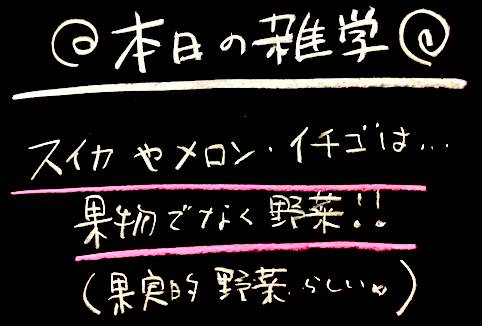 @本日の雑学@
スイカやメロン・イチゴは...
果物でなく野菜!!
(果実的野菜らしいw)